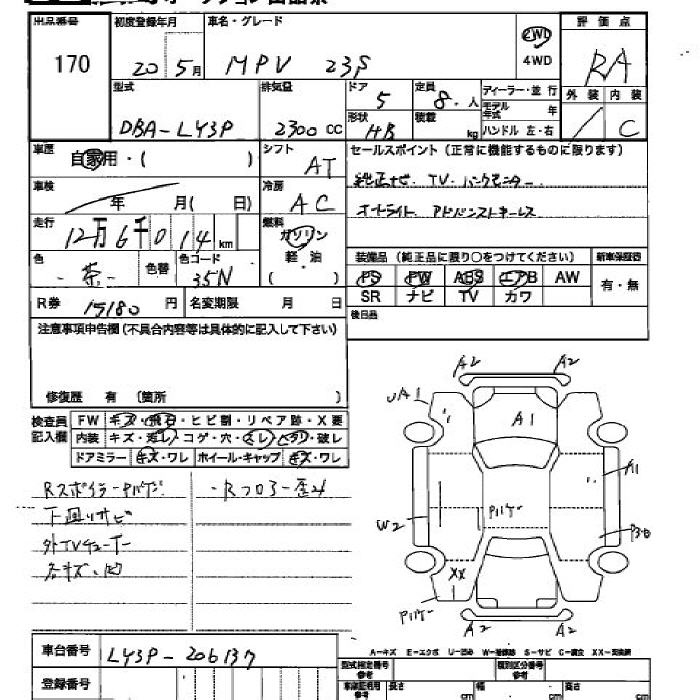 出品番号 初度登録年月 車名・グレード 評価点
170 20 5月 MPV 23S 2WD 4WD RA
型式 排気量 ドア 定員 ディーラー・並行 外装 内装
DBA-LY3P 2300cc 5 8人 モデル年式 年
形状 HB 積載 kg ハンドル 左・右 / C
車歴 自家用・( ) シフト AT セールスポイント(正常に機能するものに限ります)
車検 年 月( 日) 冷房 AC 純正ナビ TV バックモニター
走行 12万6千014km 燃料 ガソリン 軽油 ( ) オートライト アドバンストキーレス
色 茶 色替 色コード 35N 装備品(純正品に限り○をつけてください) 新車保証書
PS PW ABS エアB AW 有・無
R券 15180円 名変期限 月 日 SR ナビ TV カワ
注意事項申告欄(不具合内容等は具体的に記入して下さい) 後日品
修復歴 有 (箇所 )
検査員記入欄 FW キズ・飛石・ヒビ割・リペア跡・X要
内装 キズ・汚レ・コゲ・穴・スレ・ヘタリ・破レ
ドアミラー キズ・ワレ ホイール・キャップ キズ・ワレ
A2 A2
UA1 A1
A1
Rスポイラー Rフロアー歪ミ
下廻リサビ
外TVチューナー
各キズ、凹
W2
XX
A2 A2
A-キズ E-エクボ U-凹み S-サビ
車台番号 LY3P-206137
登録番号
型式指定番号 類別区分番号
長さ cm 幅 cm 高さ cm